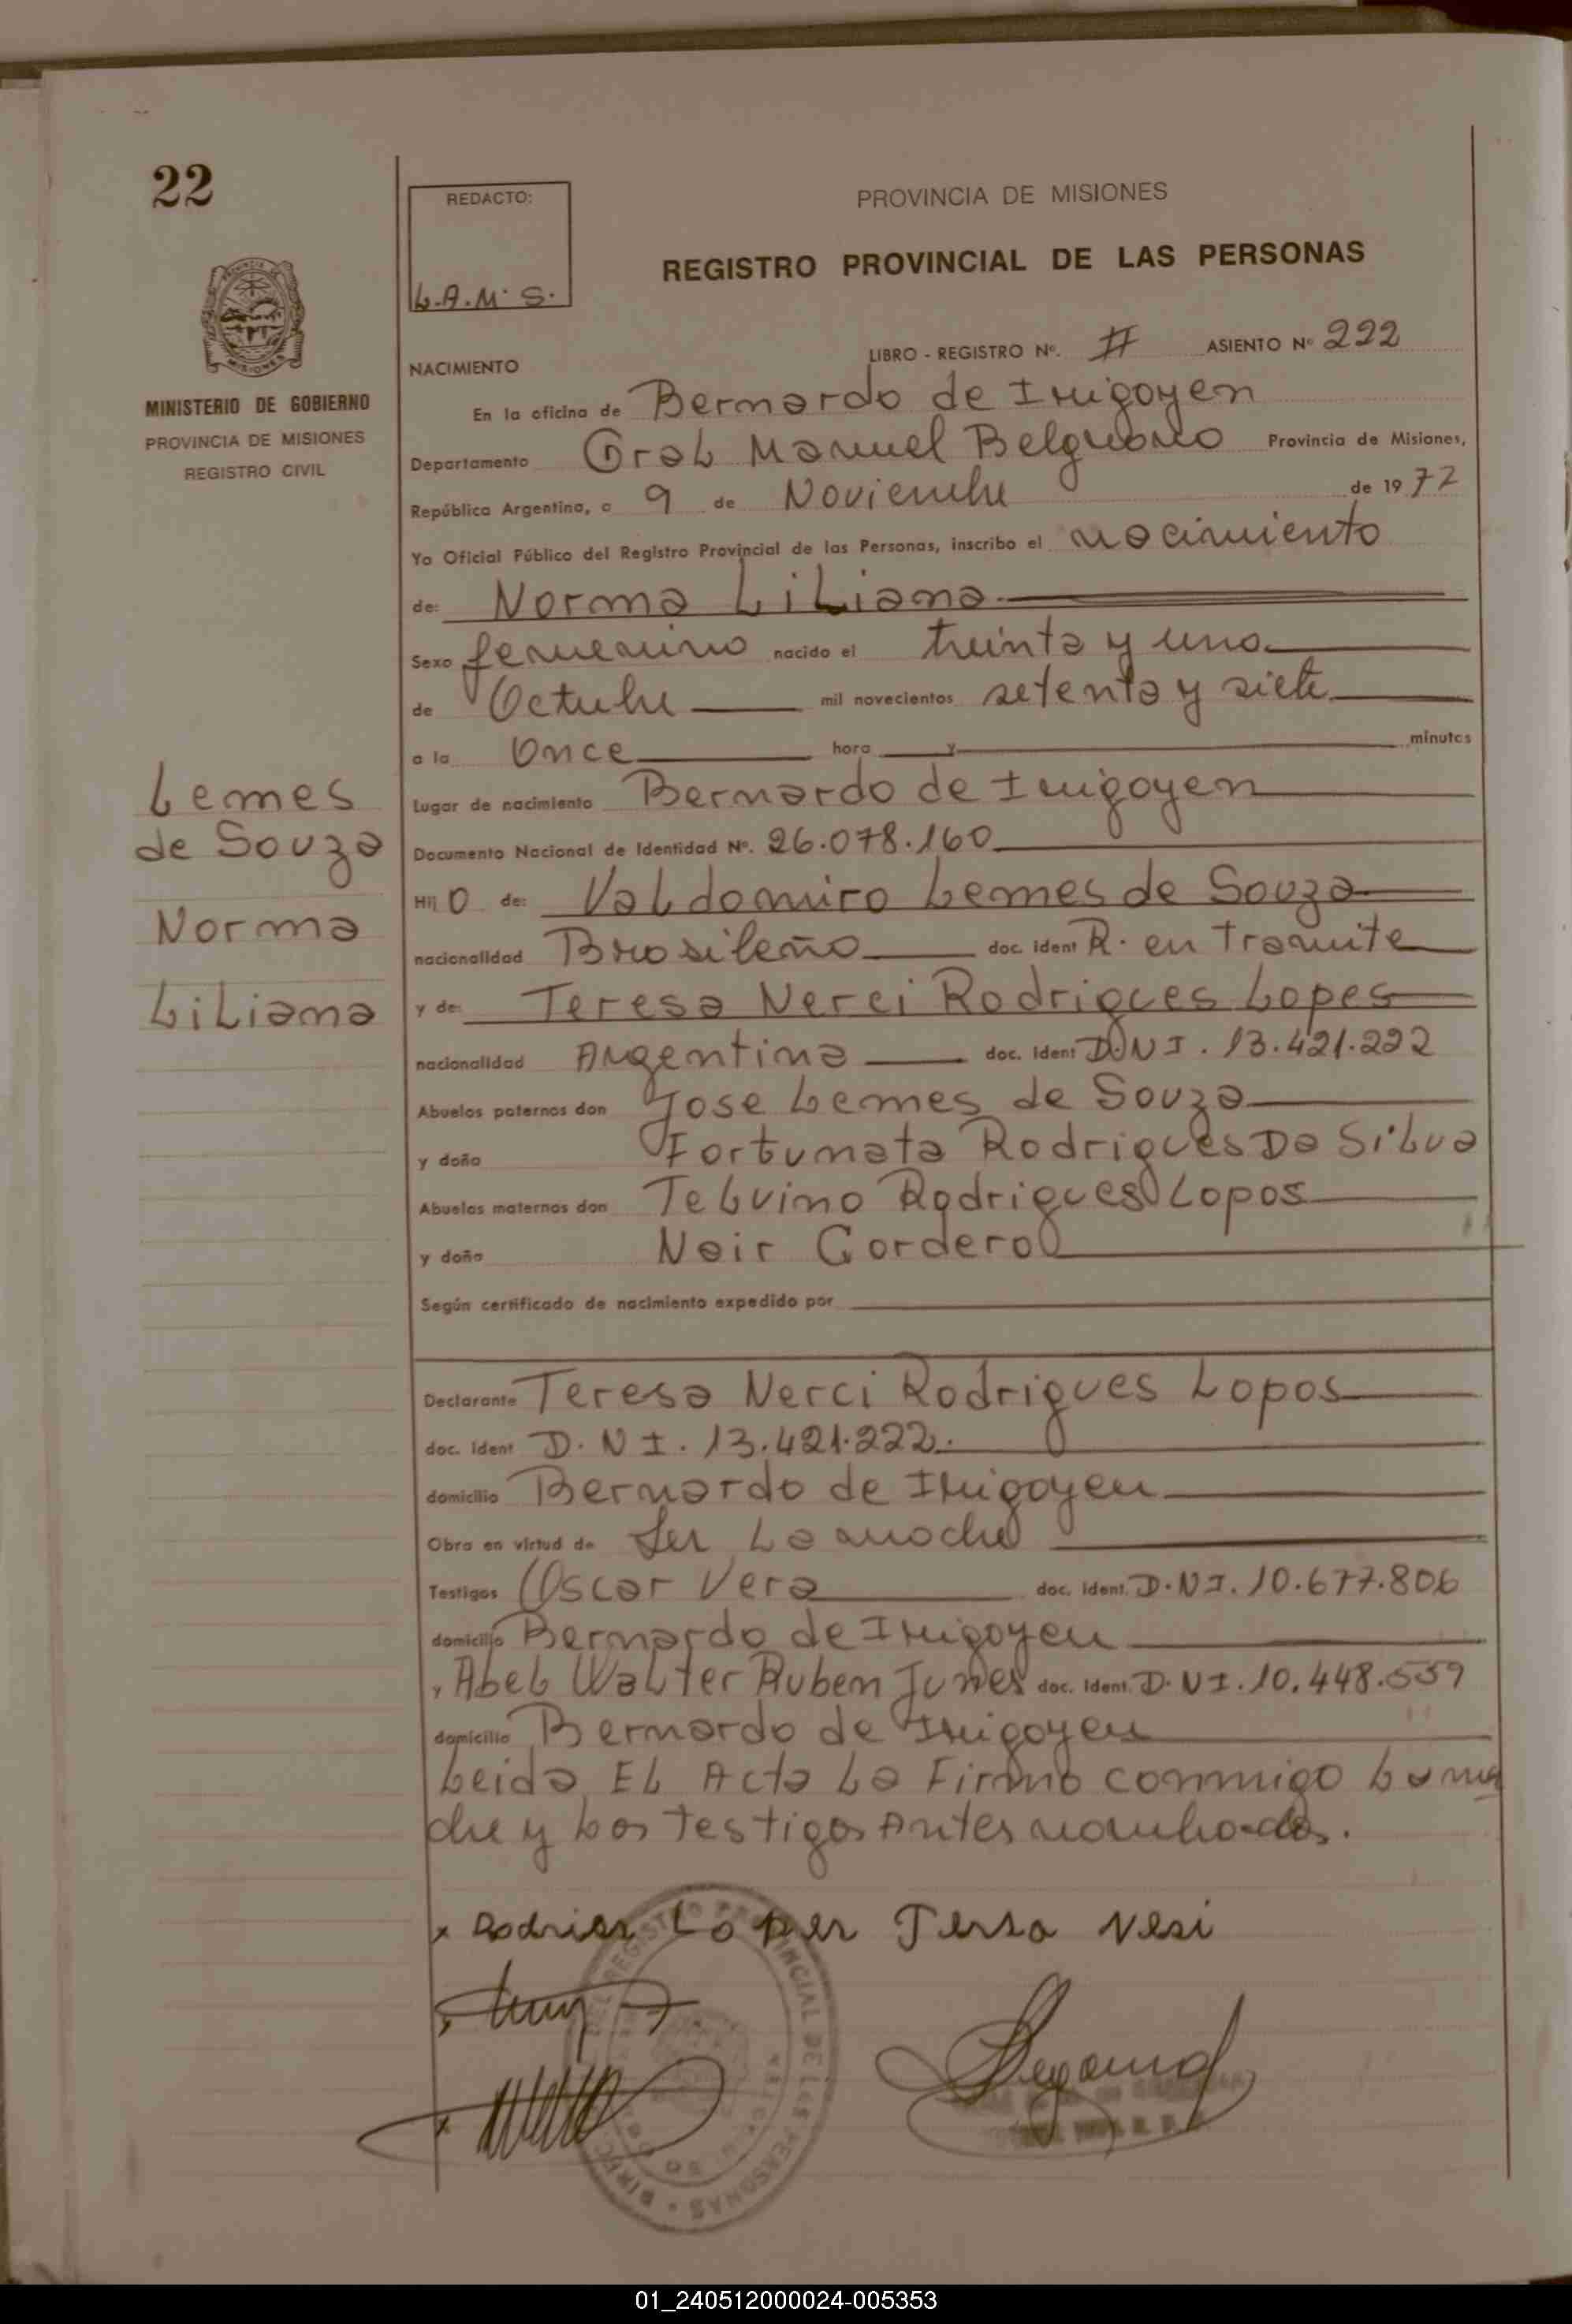 22
REDACTO:
L.A.M. S.
PROVINCIA DE MISIONES
REGISTRO PROVINCIAL DE LAS PERSONAS
MINISTERIO DE GOBIERNO
PROVINCIA DE MISIONES
REGISTRO CIVIL
NACIMIENTO
LIBRO - REGISTRO Nº. II ASIENTO Nº 222
En la oficina de Bernardo de Irigoyen
Departamento Gral Manuel Belgrano Provincia de Misiones,
República Argentina, a 9 de Noviembre de 1977
Yo Oficial Público del Registro Provincial de las Personas, inscribo el nacimiento
de: Norma Liliana
Sexo femenino nacido el treinta y uno
de Octubre mil novecientos setenta y siete
a la Once hora y minutos
Lugar de nacimiento Bernardo de Irigoyen
Documento Nacional de Identidad Nº. 26.078.160
Lemes
de Souza
Norma
Liliana
Hij o de: Valdomiro Lemes de Souza
nacionalidad Brasileño doc. ident R. en Tramite
y de: Teresa Nerci Rodrigues Lopes
nacionalidad Argentina doc. ident D.N I. 13.421.222
Abuelos paternos don Jose Lemes de Souza
y doña Fortunata Rodrigues Da Silva
Abuelos maternos don Telvino Rodrigues Lopos
y doña Nair Cordero
Según certificado de nacimiento expedido por
Declarante Teresa Nerci Rodrigues Lopos
doc. ident D. N I. 13.421.222.
domicilio Bernardo de Irigoyen
Obra en virtud de Ser La madre
Testigos Oscar Vera doc. ident. D.N I. 10.677.806
domicilio Bernardo de Irigoyen
y Abel Walter Ruben Junes doc. ident. D. N I. 10.448.559
domicilio Bernardo de Irigoyen
Leida El Acta La Firmo conmigo La ma
dre y los Testigos Antes nombrados.
x Rodries Loper Tersa Nesi
REGISTRO PROVINCIAL DE LAS PERSONAS
01_240512000024-005353